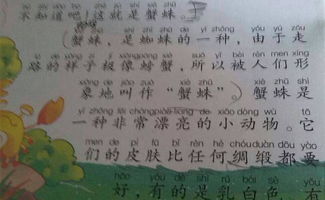 不知道吧!这就是蟹蛛。
xiè zhū shì zhī zhū de yì zhǒng yóu yú zǒu
蟹蛛,是蜘蛛的一种,由于走
lù de yàng zi jí xiàng páng xiè suǒ yǐ bèi rén men xíng
路的样子极像螃蟹,所以被人们形
xiàng de jiào zuò xiè zhū xiè zhū shì
象地叫作“蟹蛛”。蟹蛛是
yì zhǒng fēi cháng piào liang de xiǎo dòng wù tā
一种非常漂亮的小动物。它
men de pí fū bǐ rèn hé chóu duàn dōu yào
们的皮肤比任何绸缎都要
hǎo yǒu de shì rǔ bái sè yǒu
好,有的是乳白色,有